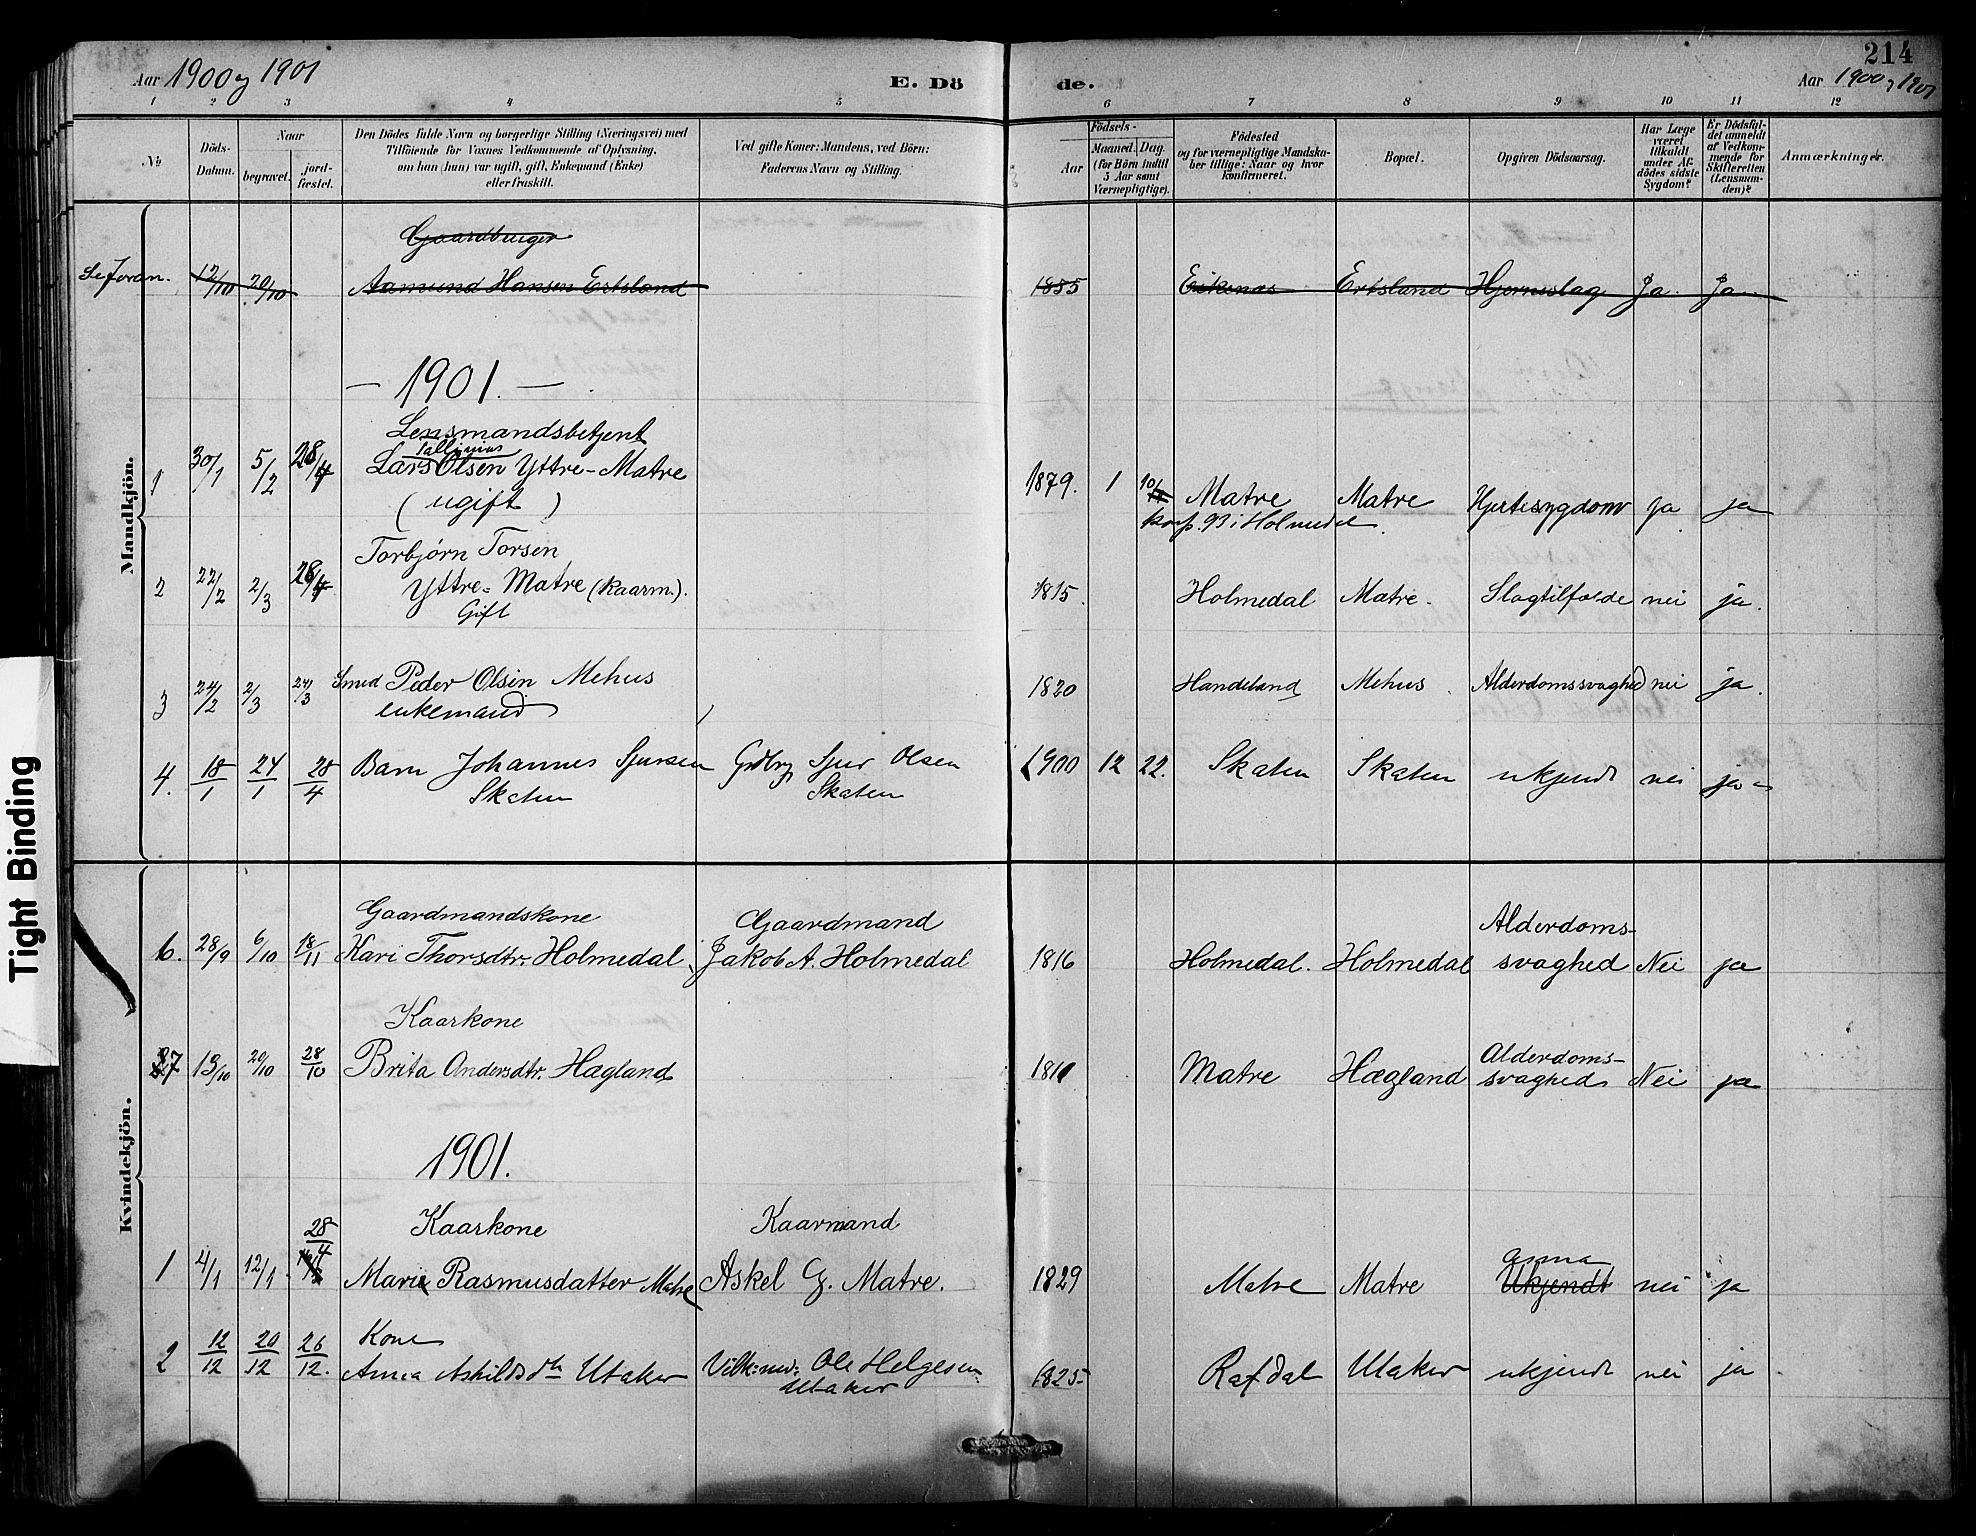 Aar 1900 og 1901
E. Döde.
214
Aar 1900 og 1901
1 2 3 4 5 6 7 8 9 10 11 12
No.
Döds-Datum.
Naar
begravet.
jordfæstet.
Den Dödes fulde Navn og borgerlige Stilling (Næringsvei) med
Tilföiende for Voxnes Vedkommende af Oplysning,
om han (hun) var ugift, gift, Enkemand (Enke)
eller fraskilt.
Ved gifte Koner: Mandens, ved Börn:
Faderens Navn og Stilling.
Födsels-
Aar
Maaned. Dag.
(for Börn indtil
5 Aar samt
Værnepligtige).
Födested
og for værnepligtige Mandska-
ber tillige: Naar og hvor
konfirmeret.
Bopæl.
Opgiven Dödsaarsag.
Har Læge
været
tilkaldt
under Af-
dödes sidste
Sygdom?
Er Dödsfal-
det anmeldt
af Vedkom-
mende for
Skifteretten
(Lensman-
den)?
Anmærkninger.
Mandkjön.
Gaardbruger
Se foran. 12/10 20/10 Aamund Hansen Ertsland 1855 Eikenæs Ertsland Hjerneslag Ja Ja
- 1901. -
Lensmandsbetjent
1 30/1 5/2 28/4 Lars Olsen Yttre-Matre 1879. 1 10 Matre Matre Hjertesygdom ja ja
(ugift) konf. 93 i Holmedal
Torbjørn Torsen
2 22/2 2/3 28/4 Yttre-Matre (Kaarm.). 1815. Holmedal Matre. Slagtilfælde nei ja.
Gift
3 24/2 2/3 24/3 Smed Peder Olsen Mehus 1820 Handeland Mehus Alderdomssvaghed nei ja.
enkemand
4. 18/1 24/1 28/4 Barn Johannes Sjursen Grdbr. Sjur Olsen 1900 12 22. Skaten Skaten ukjendt nei ja
Skaten Skaten
Kvindekjön.
Gaardmandskone Gaardmand Alderdoms-
6. 28/9 6/10 18/11 Kari Thorsdtr. Holmedal, Jakob A. Holmedal 1816 Holmedal. Holmedal svaghed Nei ja
Kaarkone Alderdoms-
7 13/10 20/10 28/10 Brita Andersdtr. Hægland 1811 Matre Hægland svaghed Nei ja
1901.
Kaarkone Kaarmand
28/4 asma
1 4/1 12/1 Mari Rasmusdatter Matre Askel G. Matre. 1829 Matre Matre Ukjendt nei ja
Kone
2 12/12 20/12 26/12. Anna Askilds dtr Utaker Vilk: md: Ole Helgesen 1825 Rafdal Utaker ukjendt nei ja
Utaker
Tight Binding